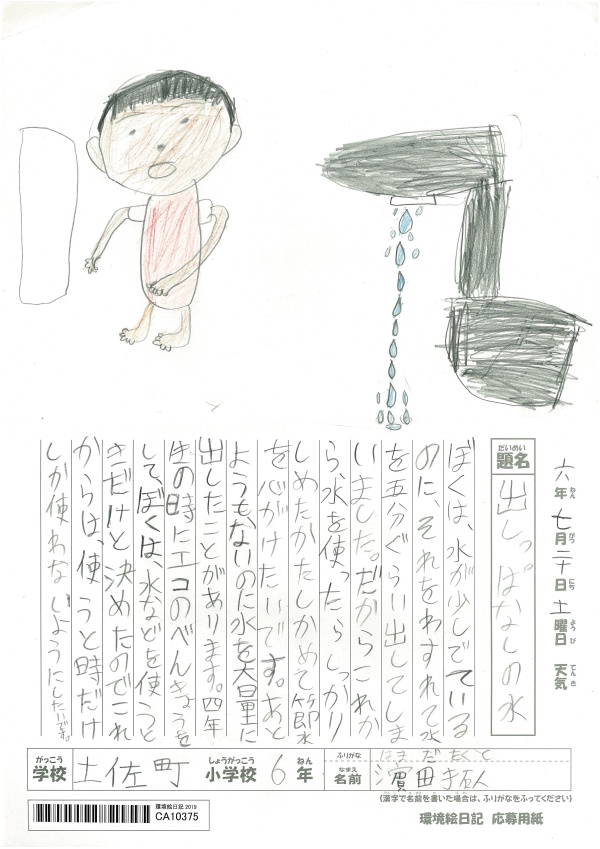 六年七月二十日土曜日 天気
ねん がつ にち ようび てんき
だいめい
題名 出しっぱなしの水
ぼくは、水が少しでている
のに、それをわすれて水
を五分ぐらい出してしま
いました。だからこれか
ら、水を使ったらしっかり
しめたかたしかめて節水
を心がけたいです。あと
ようもないのに水を大量に
出したことがあります。四年
生の時にエコのべんきょうを
してぼくは、水などを使うと
きだけと決めたのでこれ
からは、使うと時だけ
しか使わないようにしたいです。
がっこう しょうがっこう ねん ふりがな はまだたくと
学校 土佐町 小学校 6年 なまえ 名前 濵田
(漢字で名前を書いた場合は、ふりがなをふってください)
環境絵日記2019
CA10375
環境絵日記 応募用紙